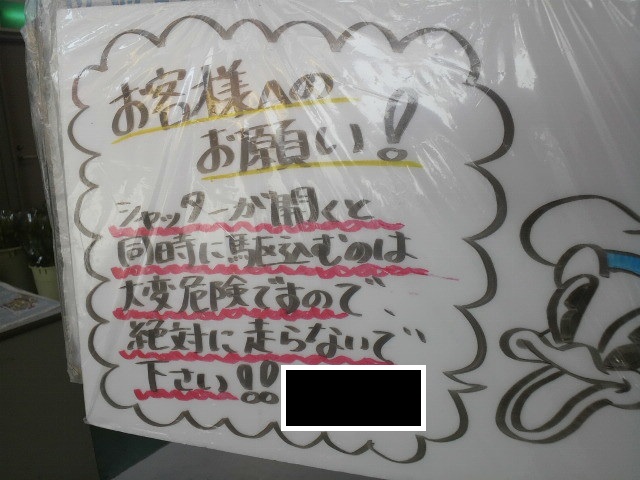 お客様への
お願い!
シャッターが開くと
同時に駆込むのは
大変危険ですので、
絶対に走らないで
下さい!!